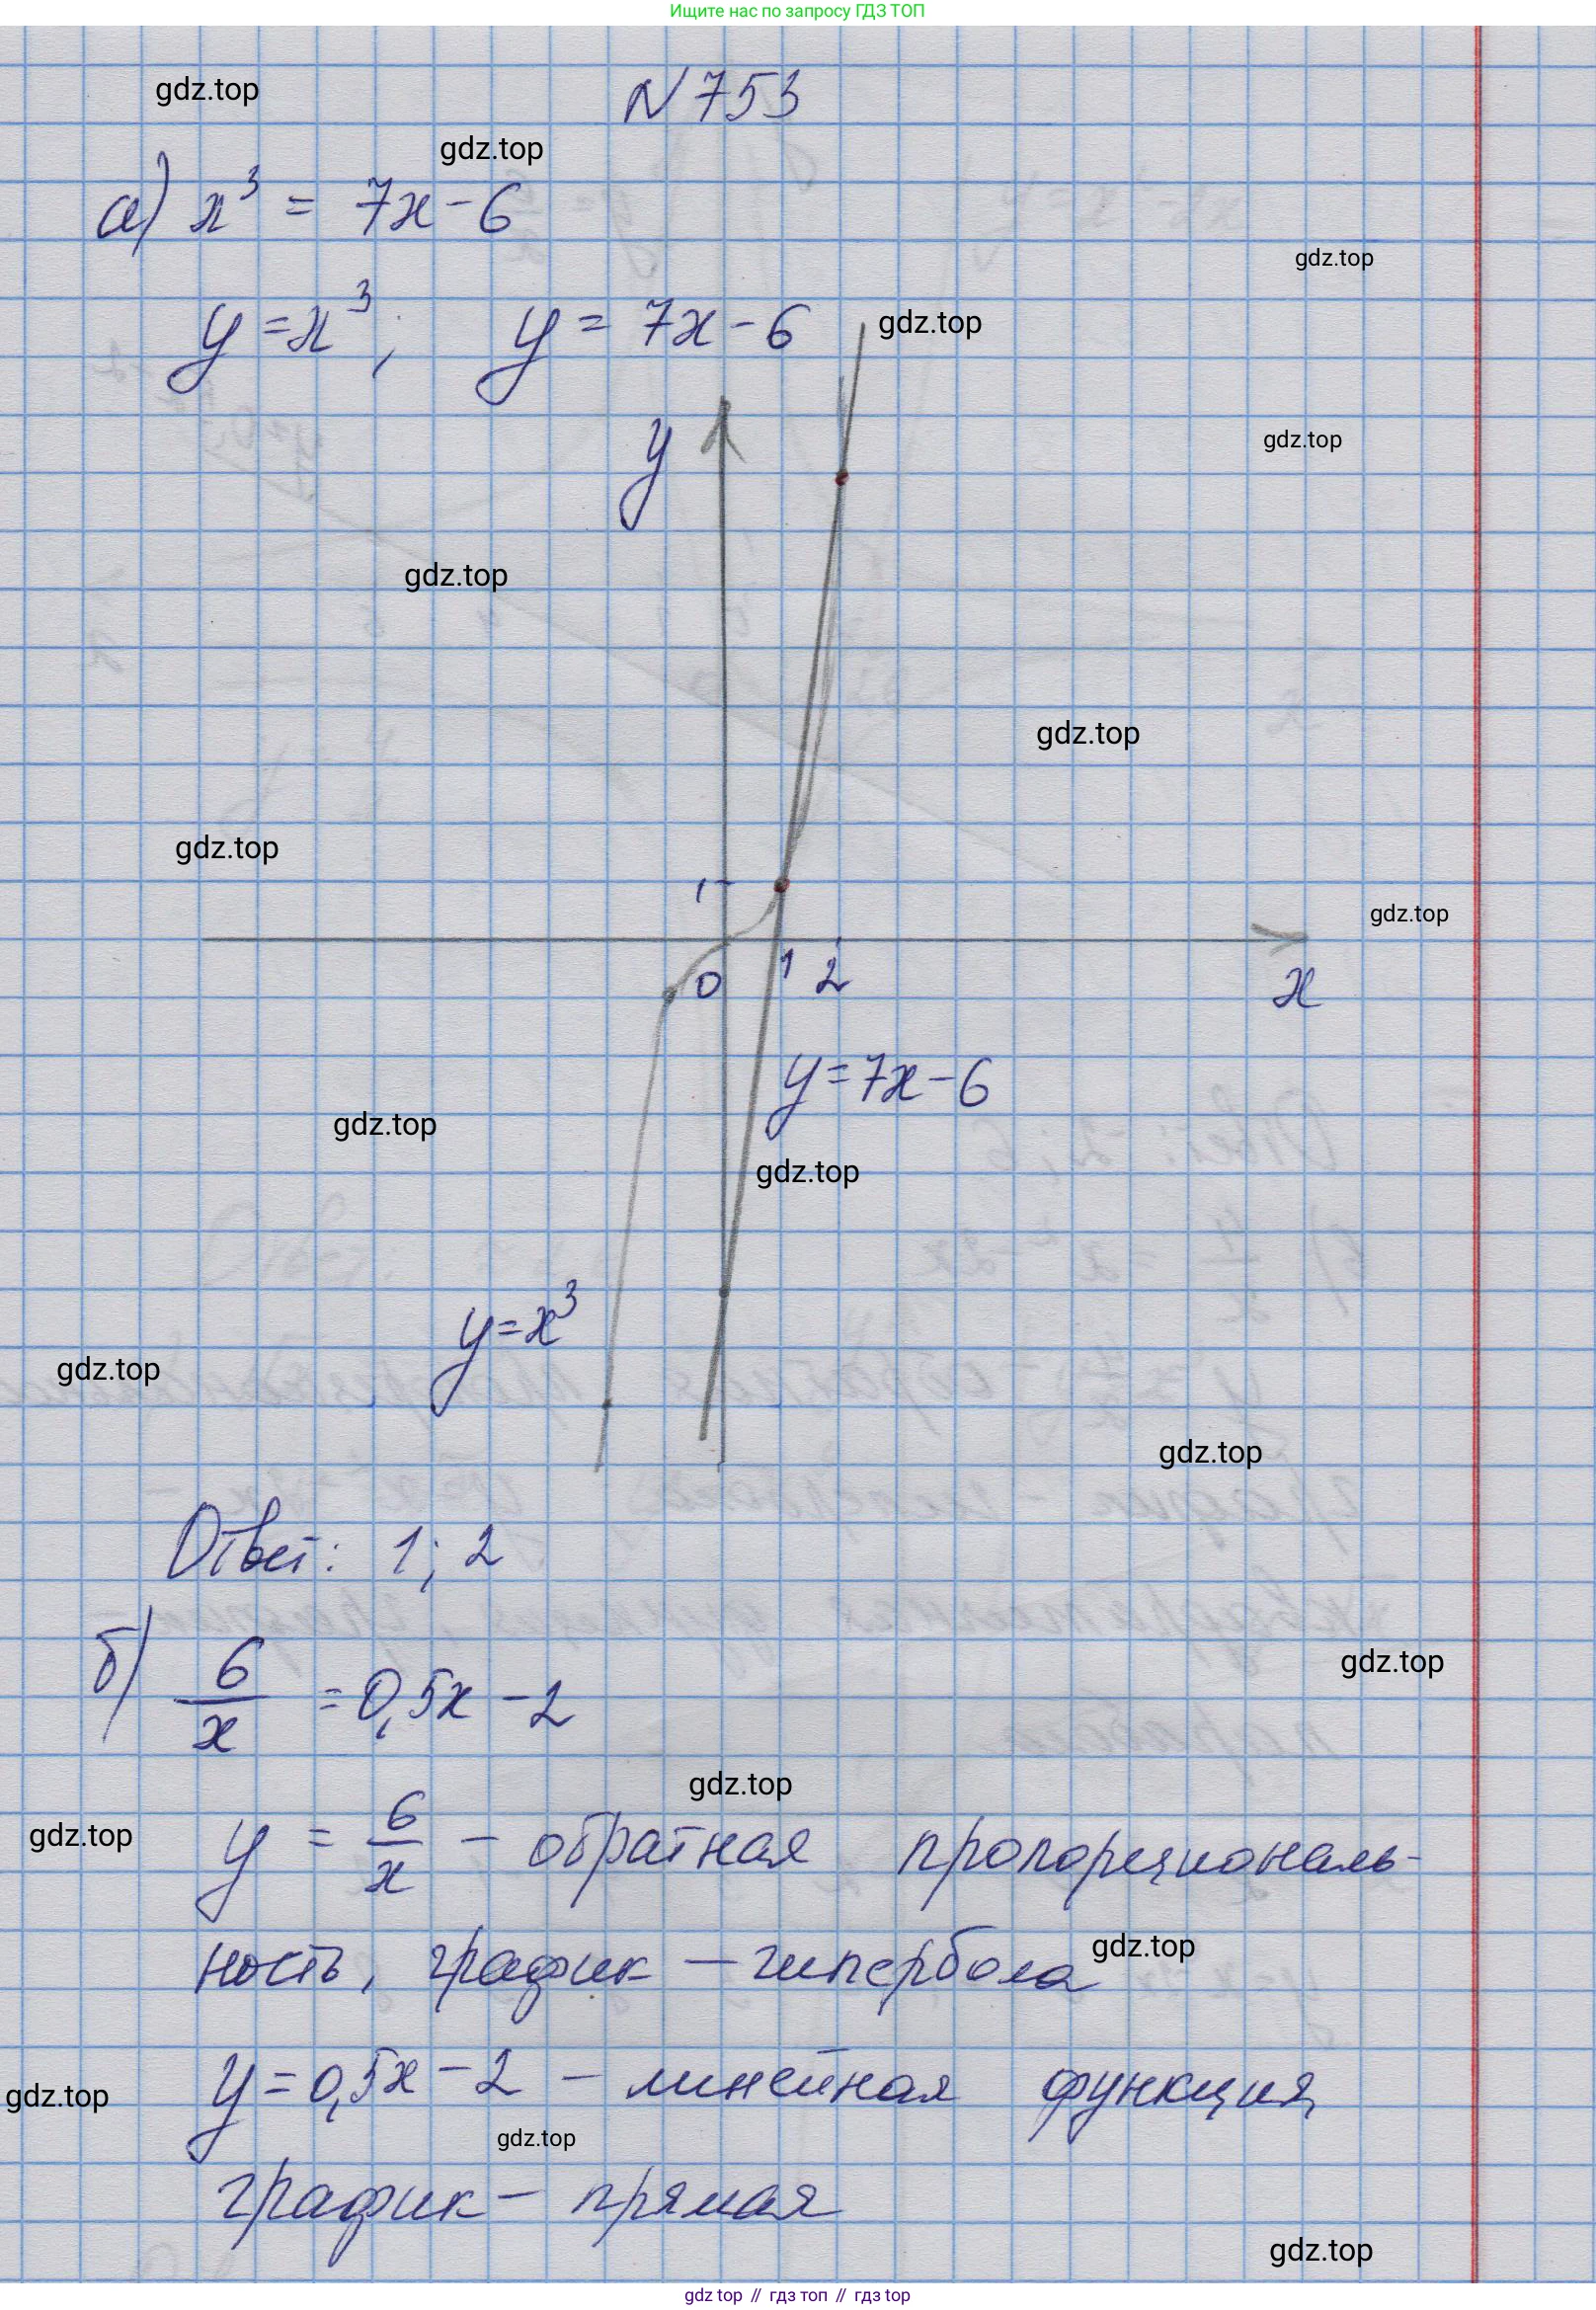 Ищите нас по запросу ГДЗ ТОП
gdz.top
N 753
gdz.top
а) x³ = 7x - 6
gdz.top
y = x³, y = 7x - 6
gdz.top
y
gdz.top
gdz.top
gdz.top
gdz.top
1
gdz.top
0 1 2
x
y = 7x - 6
gdz.top
gdz.top
y = x³
gdz.top
gdz.top
Ответ: 1; 2
б) 6/x = 0,5x - 2
gdz.top
gdz.top
gdz.top
y = 6/x - обратная пропорциональ-
ность, график - гипербола
gdz.top
y = 0,5x - 2 - линейная функция,
gdz.top
gdz.top
график - прямая
gdz.top
gdz top // гдз топ // гдз top